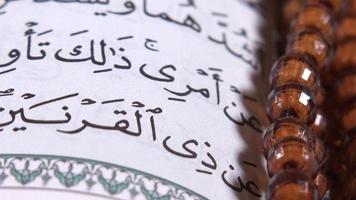 شُدَّهُمَا وَيَسْ
عَنْ أَمْرِى ۚ ذَٰلِكَ تَأْو
عَن ذِى ٱلْقَرْنَيْنِ